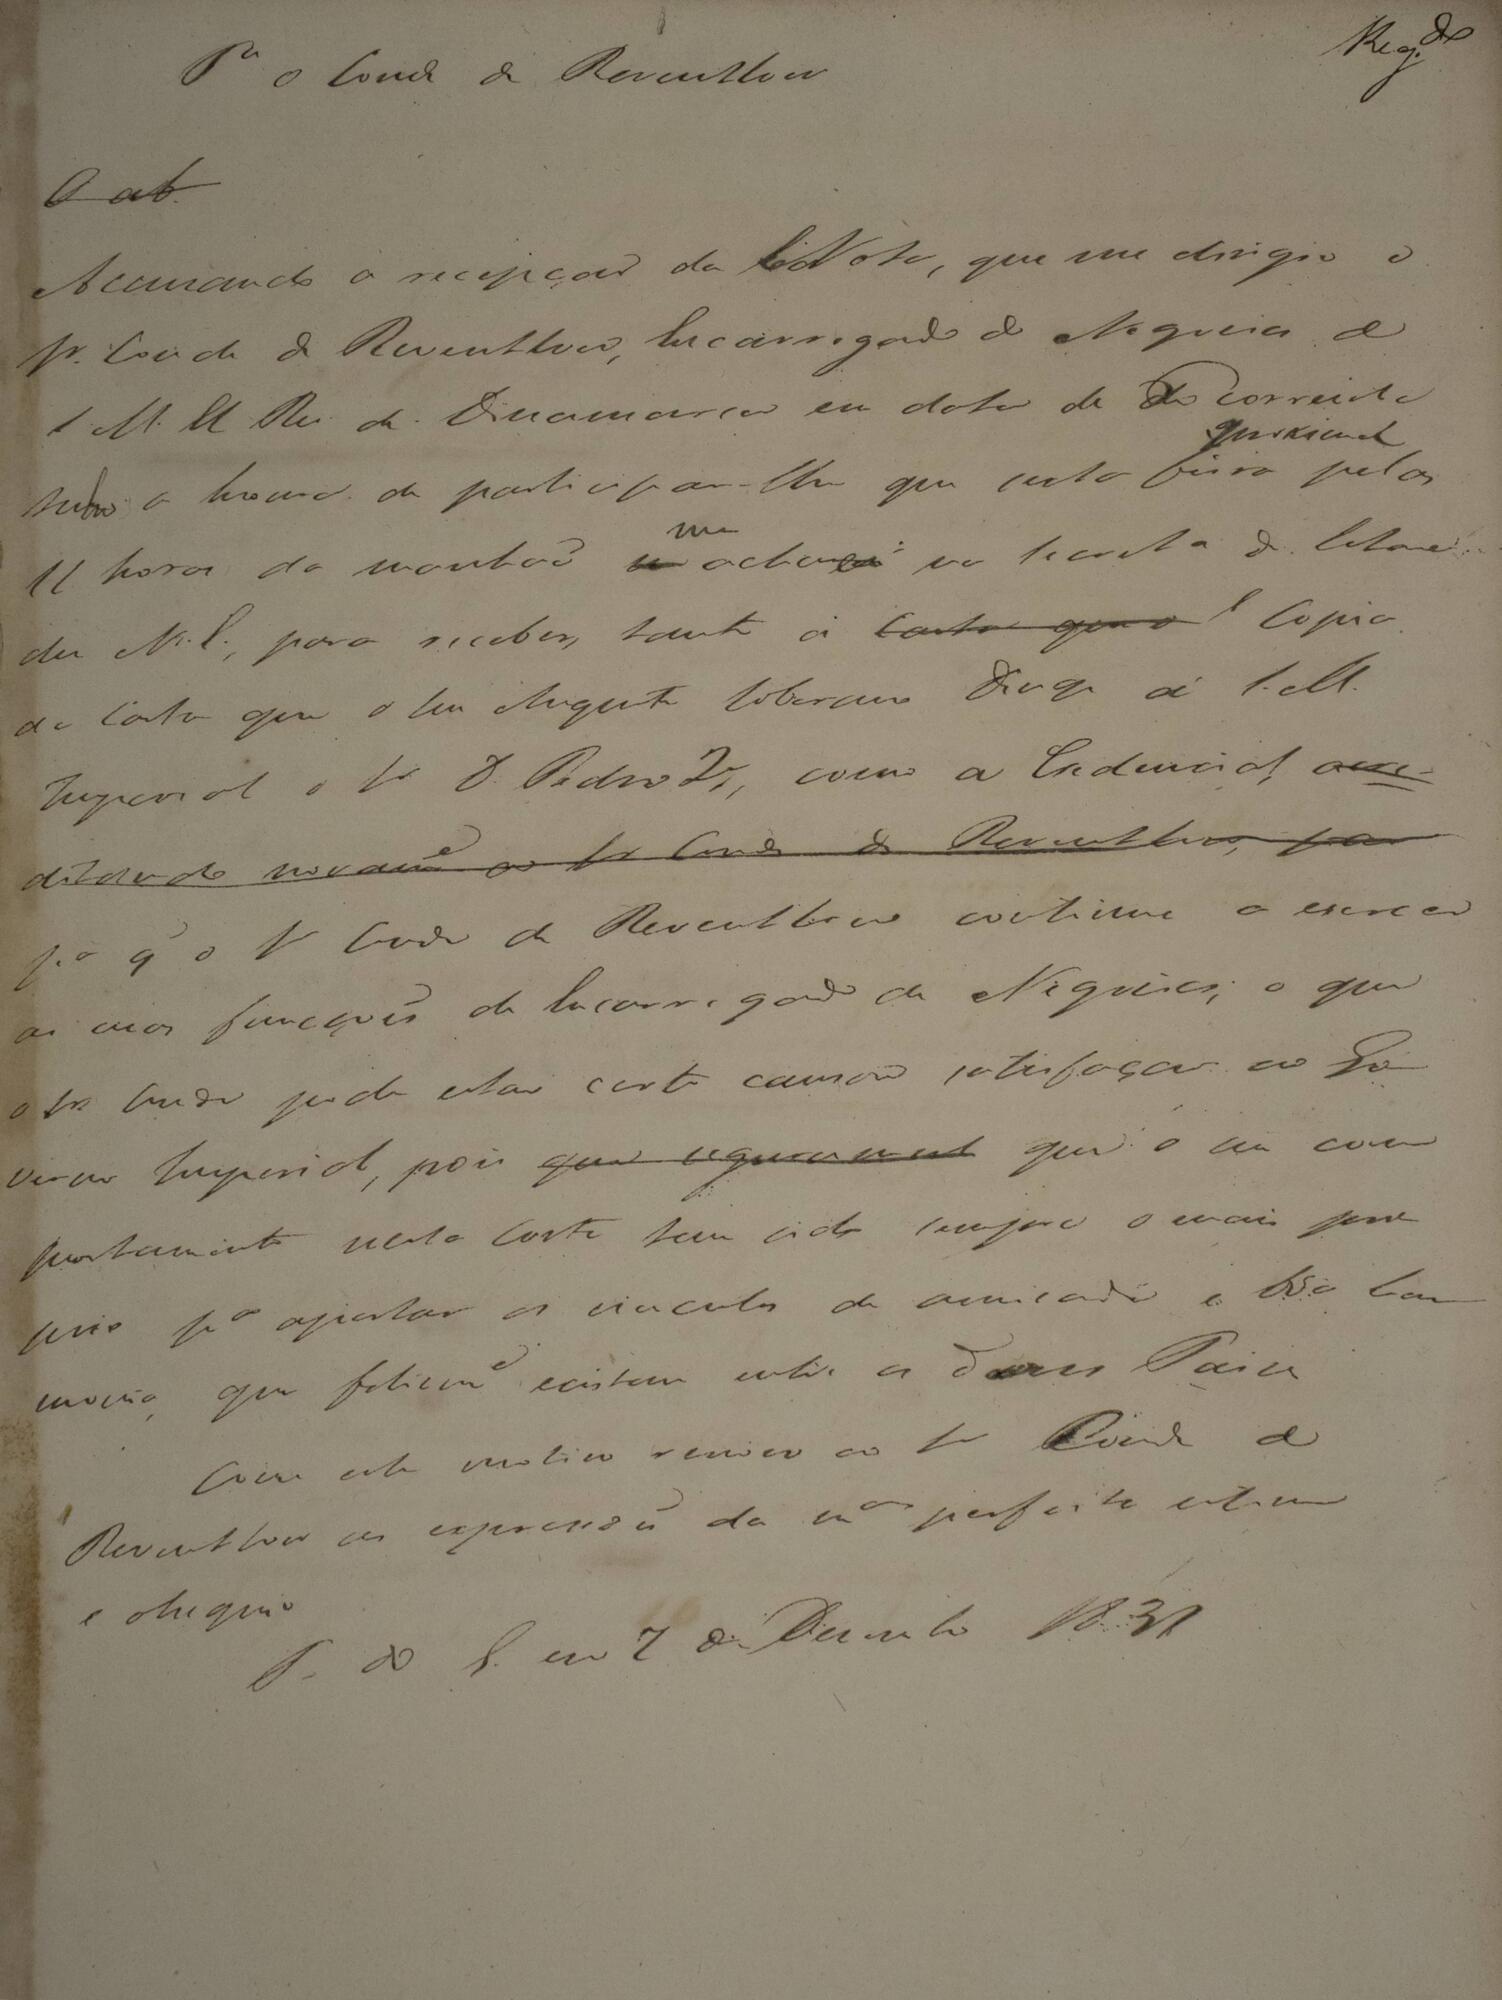 Regdo
Pa o Conde de Reventlow
O ab.
Accusando a recepçaõ da Nota, que me dirigio o
Sr. Conde de Reventlow, Encarregado de Negocios de
S. M. El Rei de Dinamarca em data de do corrente
tenho a honra de participar-lhe que sexta feira proxima pelas
11 horas da manhaã me acharei na Secreta de Estado
dos N. E., para receber, tanto a Carta que o Copia
da Carta que o Seu Augusto Soberano dirige á S. M.
Imperial o Sr D. Pedro 2º, como a Credencial, acre-
ditando novame ao Sr Conde de Reventlow, para
pa q' o Sr Conde de Reventlow continue a exercer
as suas funcçoẽs de Encarregado de Negocios; o que
o Sr Conde pode estar certo causará satisfaçaõ ao Go
verno Imperial, pois que seguramente que o seu com
portamento nesta Corte tem sido sempre o mais pro
prio pa apertar os vinculos de amizade e boa har
monia, que felizme existem entre os dous Paizes
Com este motivo renovo ao Sr Conde de
Reventlow as expressoẽs da ma perfeita estima
e obsequio
P. do em 7 de Dezembro 1831